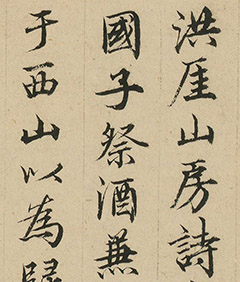 洪厓山房詩
國子祭酒兼
于西山以為歸